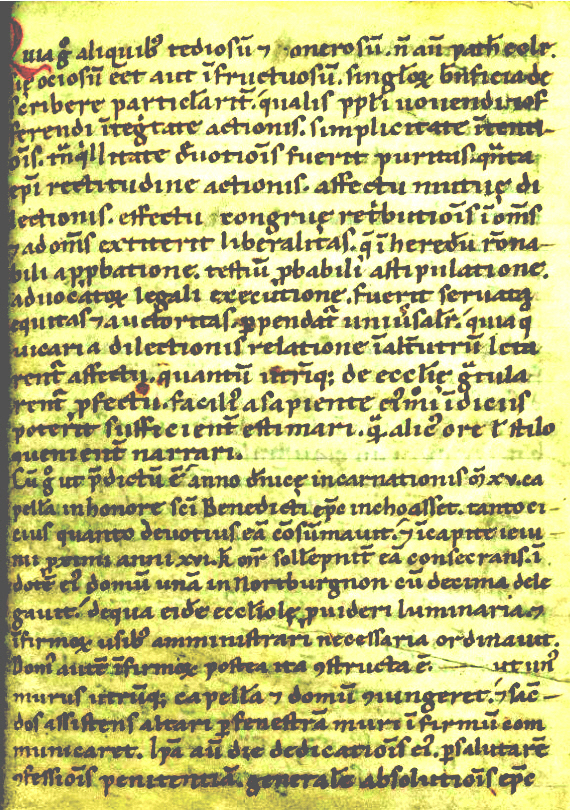 Quia gͦ aliquibꝰ tediosū ⁊ onerosū. n̄ aū path eccle
się ociosū eēt aut īfructuosū. singl̓oꝝ bn̄ficia de
scribere particl̓arit̄. qualis ꝓpl̓i uouendi uel̓
ferendi īteg̓tate actionis. simplicitate ītenti-
ōis. tn̄q̓llitate deuotiōis fuerit puritas. q̄nta
ep̄i rectitudine actionis. affectu mutuę di
lectionis. effectu congruę ret̓butiōis ī om̄s
⁊ ad om̄s extiterit liberalitas. q̄ ī heredū rōna-
bili appbatione. testiū ꝓbabili astipulatione.
aduocatoꝝ legali executione. fuerit seruata
equitas ⁊ auctoritas. ꝑpendat᷑ uniuersalit̄. quia q̓
uicaria dilectionis relatione ī alt̓utrū leta
rent᷑ affectu. quantū utrūq; de ecclie g̓tula
rent᷑ ꝓfectu. facil̓ a sapiente eiꝰmoi īdiciis
poterit sufficient̄ estimari. q̄ alicꝰ ore l̓ stilo
quenient̄ narrari.
Cū gͦ ut p̄dictū ē anno dn̄ice incarnationis m̄.xv. ca
pellā in honore sc̄i Benedicti ep̄c inchoasset. tanto ci-
cius quanto deuotius eā cōsūmauit. ⁊ ī capite ieiu
nii primi anni xvi. k̄ mr̄ sollepnit̄ eā consecrans. ī
dotē eiꝰ domū unā in Nortburgnon cū decima dele
gauit. de qua eidē eccliolę ꝓuideri luminaria. ⁊
īfirmoꝝ usibꝰ amministrari necessaria ordinauit.
Domꝰ autē īfirmoꝝ postea ita ꝯstructa ē. ut unꝰ
murus utrūq; capellā ⁊ domū ꝯiungeret. ⁊ sac̄-
dos assistens altari ꝑ fenestrā muri īfirmū com
municaret. Ip̄a aū die dedicatiōis eiꝰ. ꝑ salutarē
ꝯfessiōis penitentiā. generalē absolutiōis ep̄c